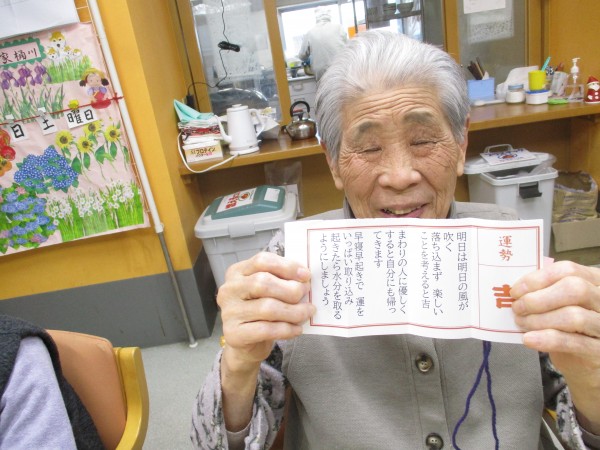 運勢
吉
明日は明日の風が
吹く
落ち込まず 楽しい
ことを考えると吉
まわりの人に優しく
すると自分にも帰っ
てきます
早寝早起きで 運を
いっぱい取り込み
起きたら水分を取る
ようにしましょう
家桶川
日 土 曜日